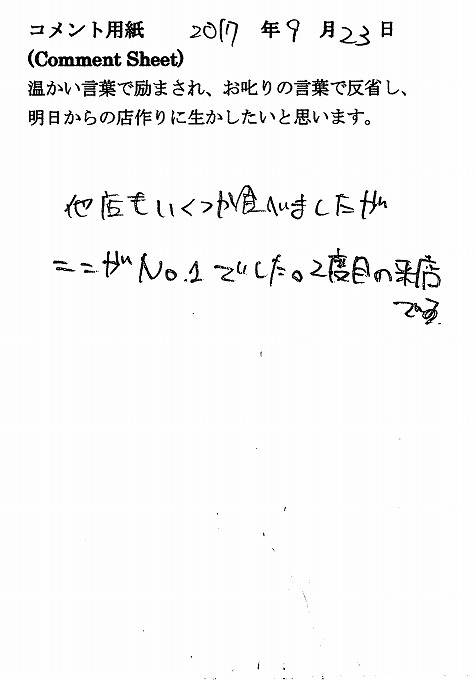 コメント用紙 2017 年 9 月 23 日
(Comment Sheet)
温かい言葉で励まされ、お叱りの言葉で反省し、
明日からの店作りに生かしたいと思います。
他店もいくつか食べましたが
ここがNo.1でした。2度目の来店
です。